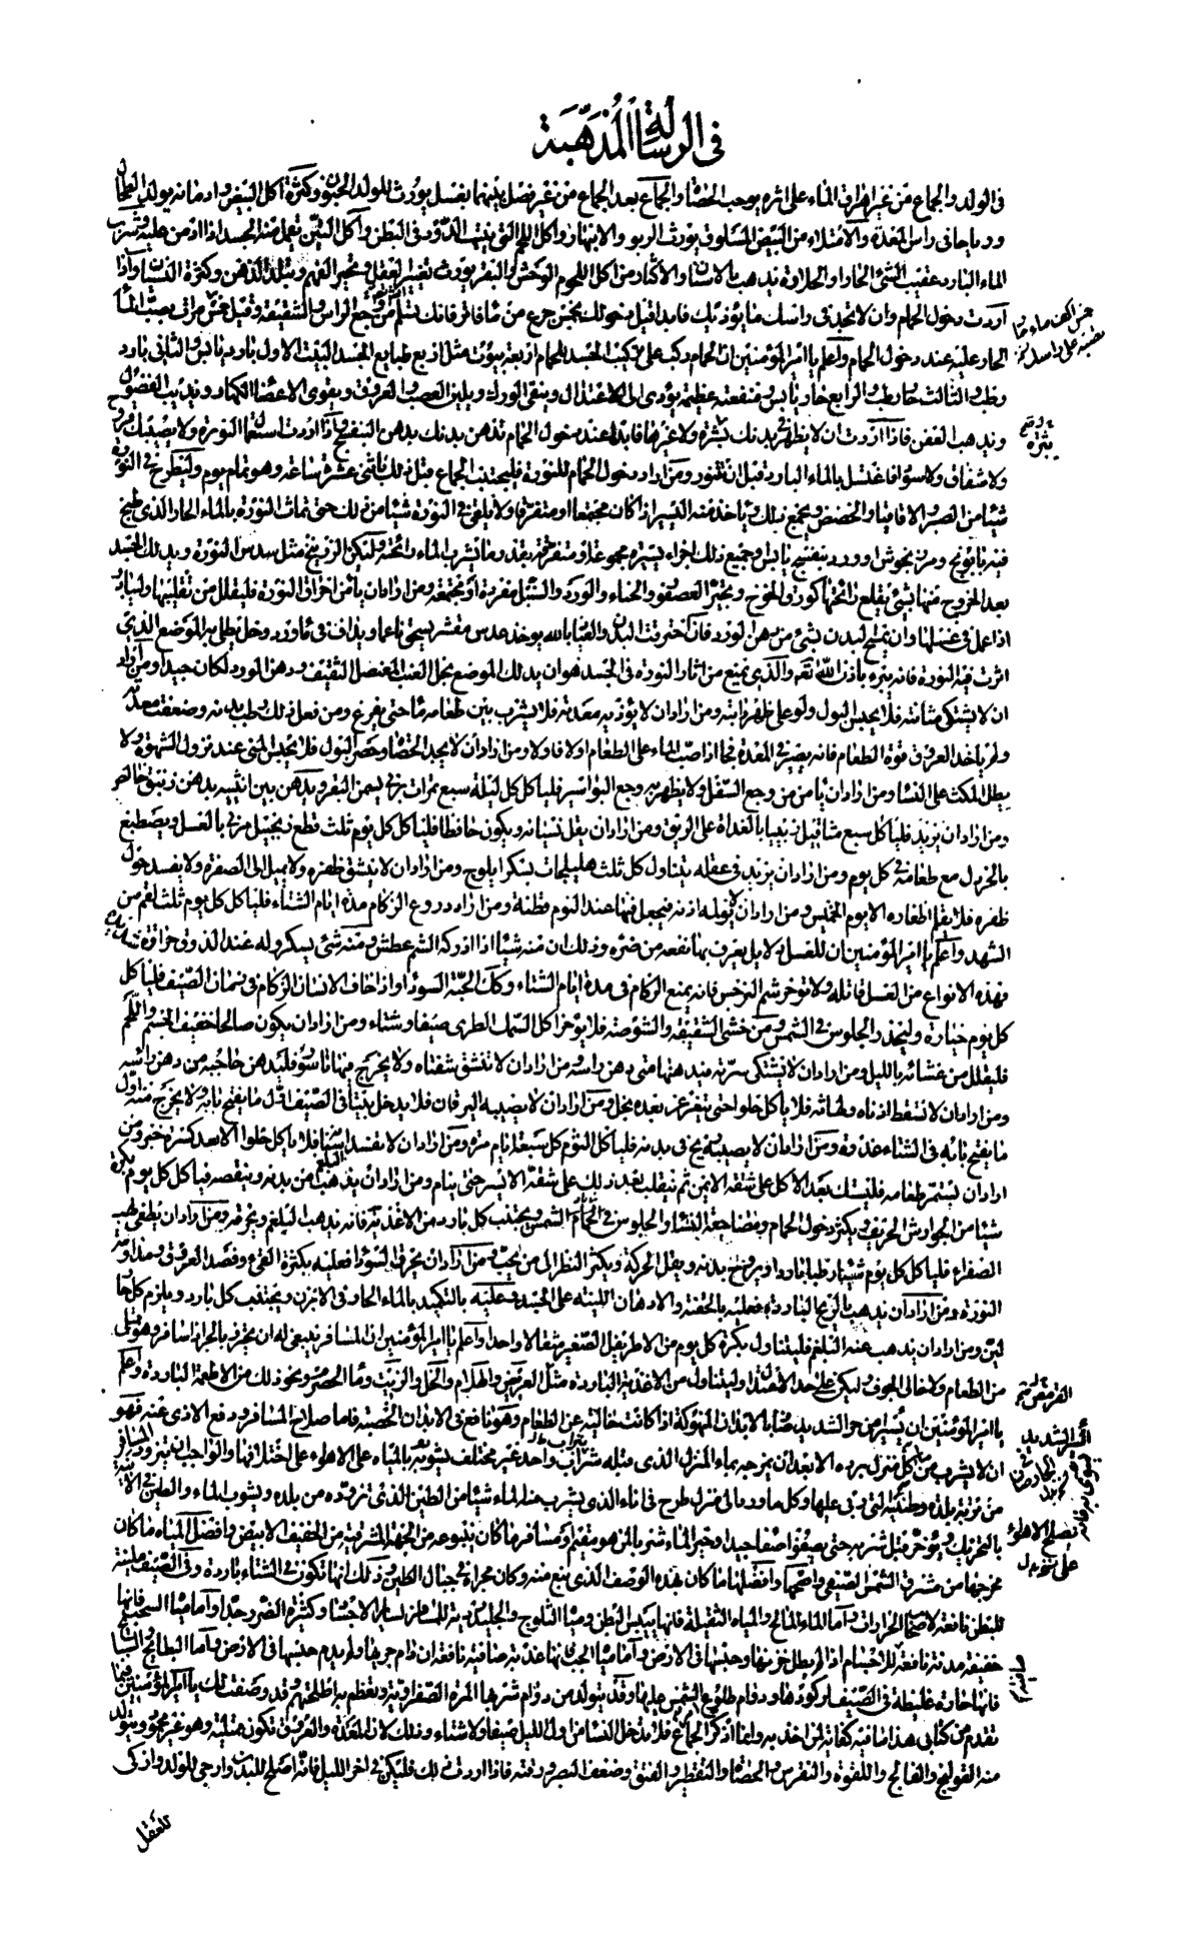 في الرسالة المذهبة
في الولد والجماع من غير اهراق الماء على اثره يوجب الحصاة والجماع بعد الجماع من غير فصل بينهما بغسل يورث للولد الجنون وكثرة اكل البيض وادمانه يولد الطحال
ورياحا في راس المعدة والامتلاء من البيض المسلوق يورث الربو والانبهار واكل اللحم الني يولد الدود في البطن واكل التين يقمل منه الجسد اذا ادمن عليه وشرب
الماء البارد عقيب الشيء الحار او الحلاوة يذهب بالاسنان والاكثار من اكل اللحوم الوحش والبقر يورث تغيير العقل وتحير الفهم وتبلد الذهن وكثرة النسيان واذا
اردت دخول الحمام وان لا تجد في راسك ما يؤذيك فابدا قبل دخولك بخمس جرع من ماء فاتر فانك تسلم من وجع الراس والشقيقة وقيل خمس مرات يصب الماء
الحار عليه عند دخول الحمام واعلم يا امير المؤمنين ان الحمام ركب على تركيب الجسد للحمام اربعة بيوت مثل اربع طبايع الجسد البيت الاول بارد يابس والثاني بارد
رطب والثالث حار رطب والرابع حار يابس ومنفعته عظيمة يؤدي الى الاعتدال وينقي الورك ويلين العصب والعروق ويقوي الاعضاء الكبار ويذيب الفضول
ويذهب العفن فاذا اردت ان لا يظهر في بدنك بثرة ولا غيرها فابدا عند دخول الحمام تدهن بدنك بدهن البنفسج واذا اردت استعمال النورة ولا يصيبك قروح
ولا شقاق ولا سواد فاغتسل بالماء البارد قبل ان تتنور ومن اراد دخول الحمام للنورة فليجتنب الجماع قبل ذلك باثنى عشرة ساعة وهو تمام يوم وليطرح في النورة
شيئا من الصبر والاقاقيا والحضض ويجمع ذلك وياخذ منه اليسير اذا كان مجتمعا او متفرقا ولا يلقى في النورة شيئا من ذلك حتى تماث النورة بالماء الحار الذي طبخ
فيه بابونج ومرزنجوش او ورد بنفسج يابس وجميع ذلك اجزاء يسيرة مجموعة او متفرقة بقدر ما يشرب الماء رائحته وليكن الزرنيخ مثل سدس النورة ويدلك الجسد
بعد الخروج منها بشيء يقلع رائحتها كورق الخوخ وثجير العصفر والحناء والورد والسنبل مفردة او مجتمعة ومن اراد ان يامن احراق النورة فليقلل من تقليبها وليبادر
اذا عمل في غسلها وان يمسح البدن بشيء من دهن الورد فان احرقت البدن والعياذ بالله يؤخذ عدس مقشر يسحق ناعما ويداف في ماء ورد وخل يطلى به الموضع الذي
اثرت فيه النورة فانه يبرء باذن الله تعالى والذي يمنع من اثار النورة في الجسد هو ان يدلك الموضع بخل العنب العنصل الثقيف ودهن الورد دلكا جيدا ومن اراد
ان لا يشتكي مثانته فلا يحبس البول ولو على ظهر دابته ومن اراد ان لا يؤذيه معدته فلا يشرب بين طعامه ماء حتى يفرغ ومن فعل ذلك رطب بدنه وضعفت معدته
ولم ياخذ العروق قوة الطعام فانه يصير في المعدة فجا اذا صب الماء على الطعام اولا فاولا ومن اراد ان لا يجد الحصاة وحصر البول فلا يحبس المني عند نزول الشهوة ولا
يطل المكث على النساء ومن اراد ان يامن من وجع السفل ولا يظهر به وجع البواسير فلياكل كل ليلة سبع تمرات برني بسمن البقر ويدهن بين انثييه بدهن زنبق خالص
ومن اراد ان يزيد في حفظه فلياكل سبع مثاقيل زبيبا بالغداة على الريق ومن اراد ان يقل نسيانه ويكون حافظا فلياكل كل يوم ثلث قطع زنجبيل مربى بالعسل ويصطبغ
بالخردل مع طعامه في كل يوم ومن اراد ان يزيد في عقله يتناول كل ثلث هليلجات بسكر ابلوج ومن اراد ان لا ينشق ظفره ولا يميل الى الصفرة ولا يفسد حول
ظفره فلا يقلم اظفاره الا يوم الخميس ومن اراد ان لا يؤلمه اذنه فيجعل فيها عند النوم قطنة ومن اراد دفع الزكام مدة ايام الشتاء فلياكل كل يوم ثلث لقم من
الشهد واعلم يا امير المؤمنين ان للعسل دلايل يعرف بها نفعه من ضره وذلك ان منه شيئا اذا ادركه الشم عطش ومنه شيء يسكر وله عند الذوق حراقة شديدة
فهذه الانواع من العسل قاتلة ولا تؤخر شم النرجس فانه يمنع الزكام في مدة ايام الشتاء وكذلك الحبة السوداء واذا خاف الانسان الزكام في زمان الصيف فلياكل
كل يوم خيارة وليحذر الجلوس في الشمس ومن خشى الشقيقة والشوصة فلا يؤخر اكل السمك الطري صيفا وشتاء ومن اراد ان يكون صالحا خفيف الجسم واللحم
فليقلل من عشائه بالليل ومن اراد ان لا يشتكي سرته فيدهنها متى دهن راسه ومن اراد ان لا تنشق شفتاه ولا يخرج فيها ناسور فليدهن حاجبه من دهن راسه
ومن اراد ان لا تسقط اذناه ولهاته فلا ياكل حلوا حتى يتغرغر بعده بخل ومن اراد ان لا يصيبه اليرقان فلا يدخل بيتا في الصيف اول ما يفتح بابه ولا يخرج منه اول
ما يفتح بابه في الشتاء غدوة ومن اراد ان لا يصيبه ريح في بدنه فلياكل الثوم كل سبعة ايام مرة ومن اراد ان لا تفسد اسنانه فلا ياكل حلوا الا بعد كسرة خبز ومن
اراد ان يستمرئ طعامه فليتك بعد الاكل على شقه الايمن ثم ينقلب بعد ذلك على شقه الايسر حتى ينام ومن اراد ان يذهب البلغم من بدنه وينقصه فياكل كل يوم بكرة
شيئا من الجوارش الحريف ويكثر دخول الحمام ومضاجعة النساء والجلوس في الشمس ويجتنب كل بارد من الاغذية فانه يذهب البلغم ويحرقه ومن اراد ان يطفى لهب
الصفراء فلياكل كل يوم شيئا رطبا باردا ويروح بدنه ويقل الحركة ويكثر النظر الى من يحب ومن اراد ان يحرق السوداء فعليه بكثرة القيء وفصد العروق ومداومة
النورة ومن اراد ان يذهب بالريح الباردة فعليه بالحقنة والادهان اللينة على الجسد وعليه بالتكميد بالماء الحار في الابزن ويجتنب كل بارد ويلزم كل حار
لين ومن اراد ان يذهب عنه البلغم فليتناول بكرة كل يوم من الاطريفل الصغير مثقالا واحدا واعلم يا امير المؤمنين ان المسافر ينبغي له ان يتحرز بالحر اذا سافر وهو ممتلئ
من الطعام ولا خالي الجوف وليكن على حد الاعتدال وليتناول من الاغذية الباردة مثل القريص والهلام والخل والزيت وماء الحصرم ونحو ذلك من الاطعمة الباردة واعلم
يا امير المؤمنين ان السير في حر الشديد ضار بالابدان المنهوكة اذا كانت خالية عن الطعام وهو نافع في الابدان الخصبة فاما صلاح المسافر ودفع الاذى عنه فهو
ان لا يشرب من ماء كل منزل يرده الا بعد ان يمزجه بماء المنزل الذي قبله او شراب واحد غير مختلف يشوبه بالمياه على الاهواء على اختلافها والواجب ان يتزود المسافر
من تربة بلده وطينته التي ربي عليها وكل ما ورد الى منزل طرح في اناءه الذي يشرب منه الماء شيئا من الطين الذي تزوده من بلده ويشوب الماء والطين في الآنية
بالتحريك ويؤخر قبل شربه حتى يصفو اصفاء جيدا وخير الماء شربا لمن هو مقيم او مسافر ما كان ينبوعه من الجهة المشرقية من الخفيف الابيض وافضل المياه ما كان
مخرجها من مشرق الشمس الصيفي واصحها وافضلها ما كان بهذه الوصف الذي ينبع منه وكان مجراه في جبال الطين وذلك انها تكون في الشتاء باردة وفي الصيف ملينة
للبطن نافعة لاصحاب الحرارات واما الماء المالح والمياه الثقيلة فانها ييبس البطن ومياه الثلوج والجليد ردية لسائر الاجساد وكثيرة الضرر جدا واما مياه السحب فانها
خفيفة عذبة نافعة للاجسام اذا لم يطل خزنها وحبسها في الارض واما مياه الجب فانها عذبة صافية نافعة ان دام جريها ولم يدم حبسها في الارض واما البطايح والسباخ
فانها حارة غليظة في الصيف لركودها ودوام طلوع الشمس عليها وقد يتولد من دوام شربها المرة الصفراوية وتعظم به اطحلتهم وقد وصفت لك يا امير المؤمنين فيما
تقدم من كتابي هذا ما فيه كفاية لمن اخذ به وانا اذكر امر الجماع فلا تدخل النساء من اول الليل صيفا ولا شتاء وذلك لان المعدة والعروق تكون ممتلية وهو غير محمود ويتولد
منه القولنج والفالج واللقوة والنقرس والحصاة والتقطير والفتق وضعف البصر ورقته فاذا اردت ذلك فليكن في اخر الليل فانه اصلح للبدن وارجى للولد وازكى
للعقل
بثرة
القريص
الحر الشديد
تصلح الاهواء